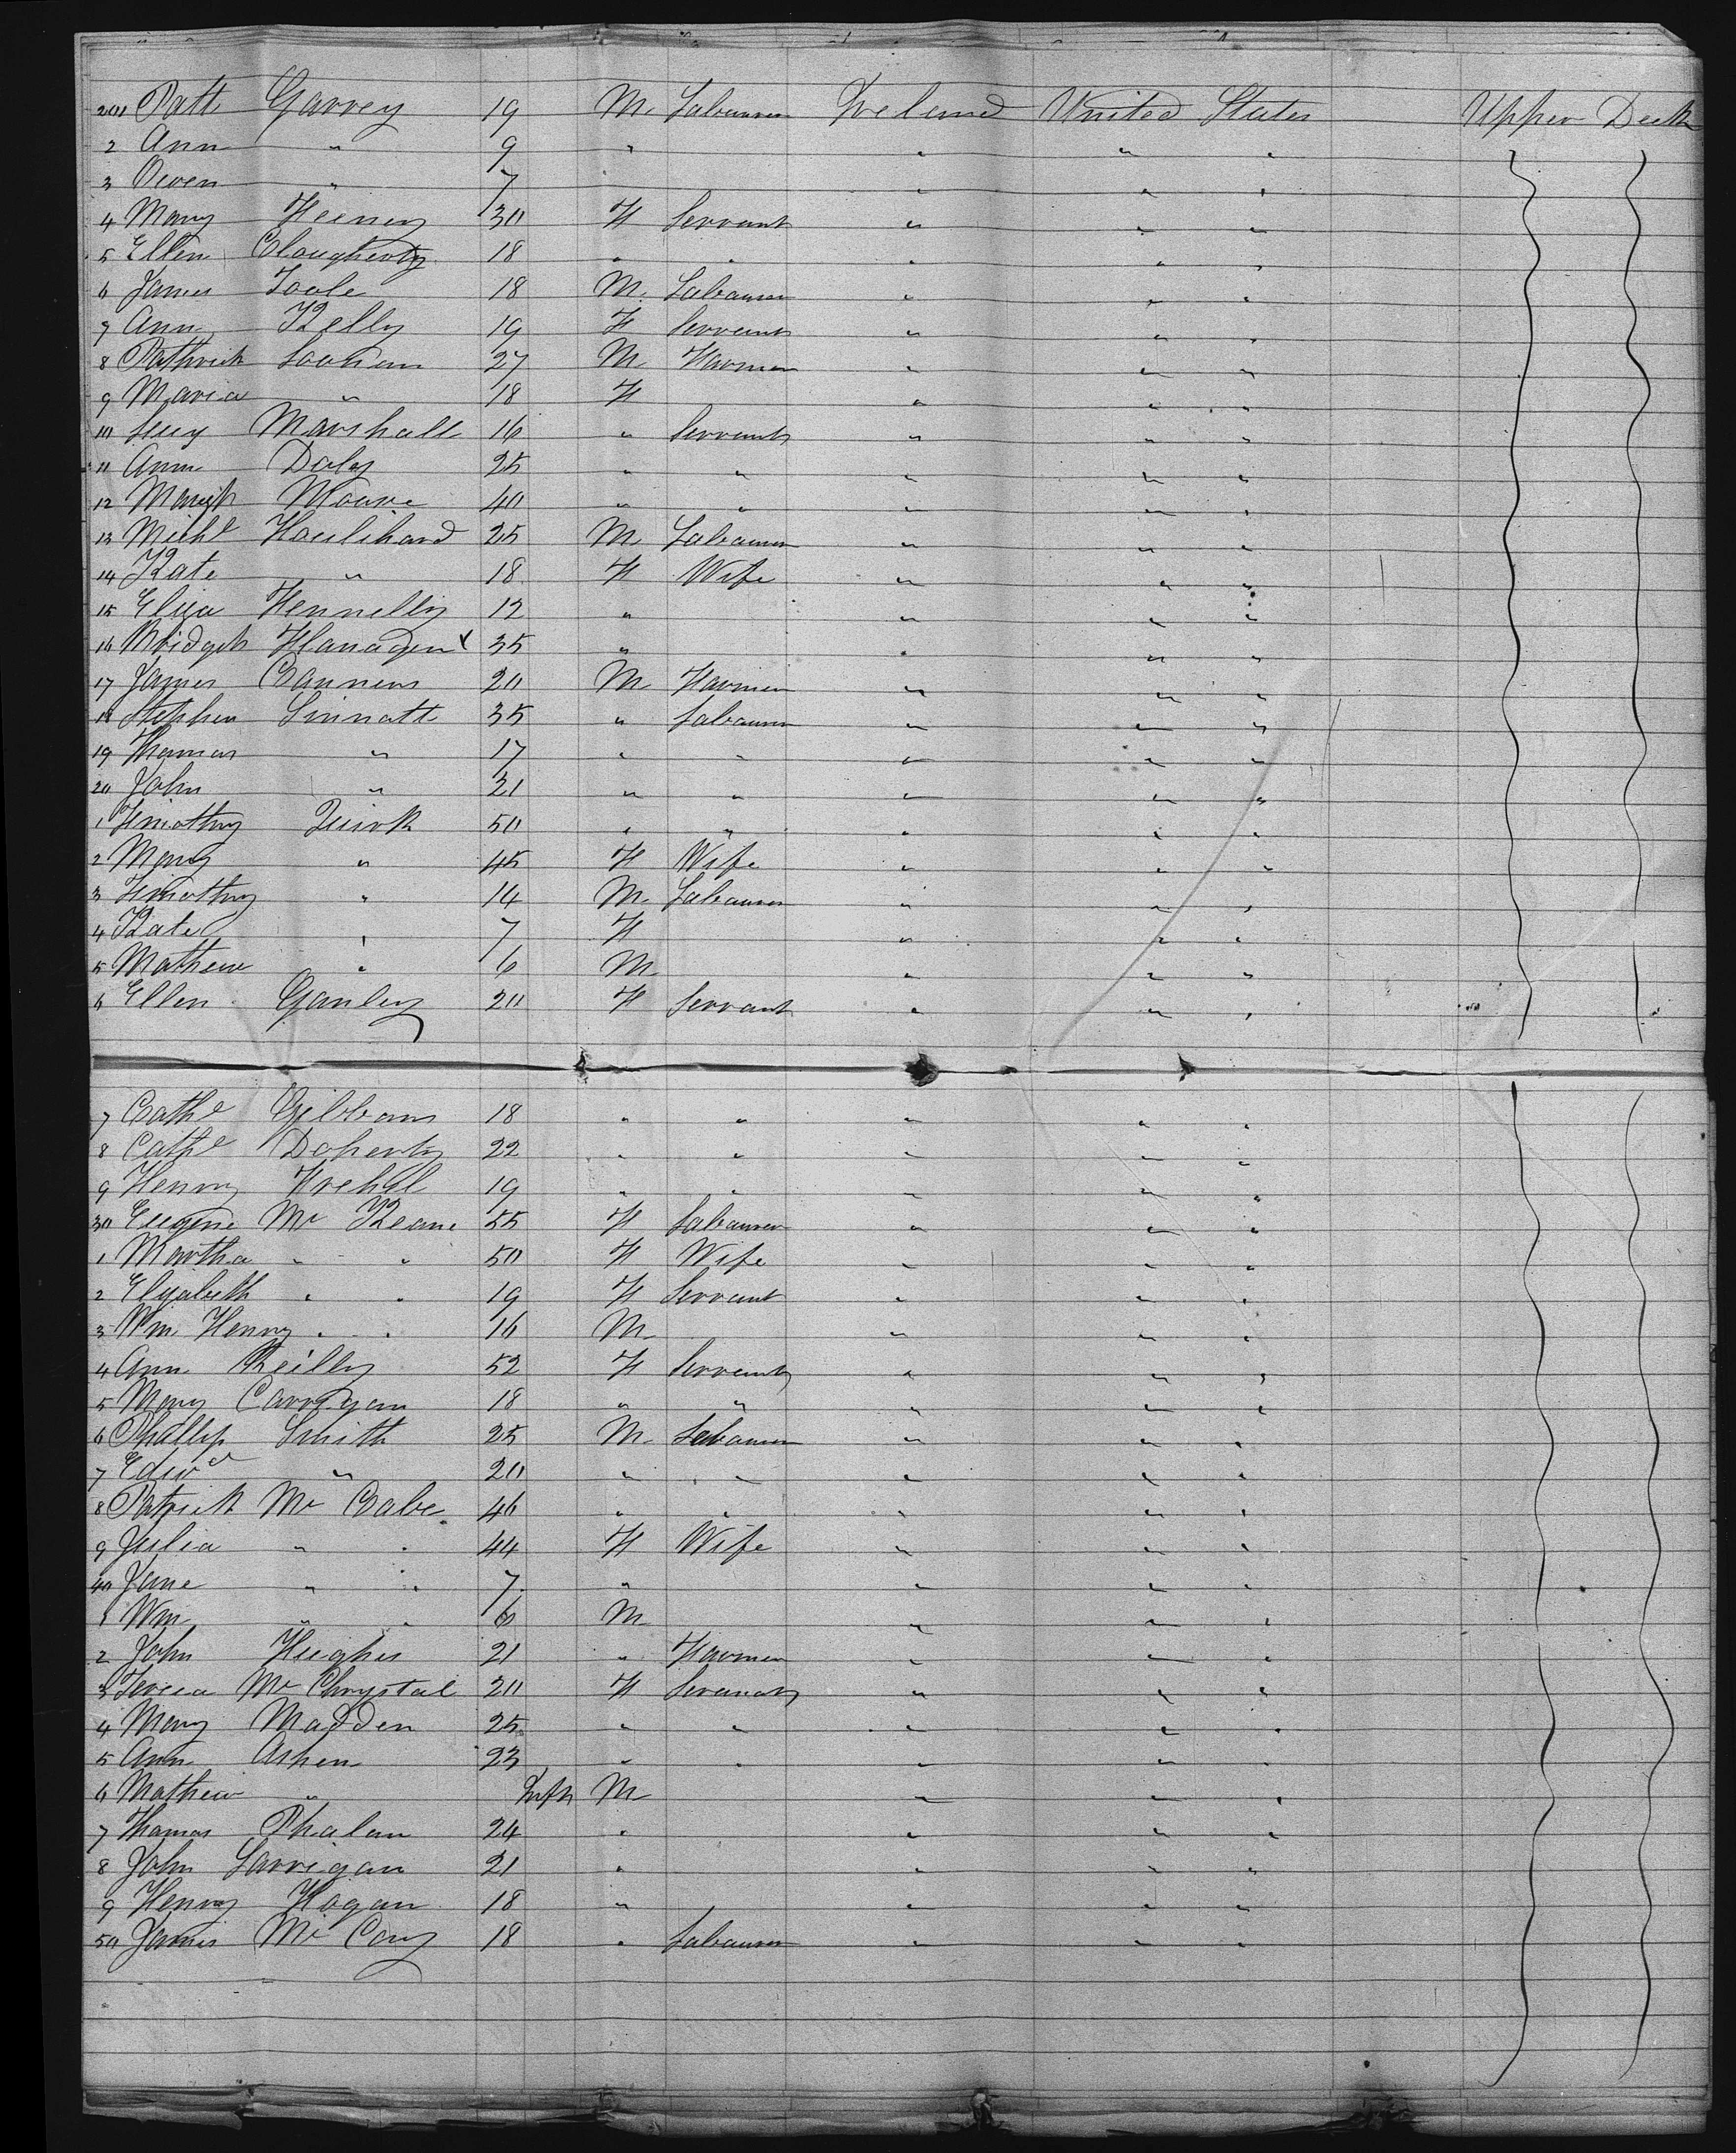 201 Patt Garvey 19 M. Labourer Ireland United States Upper Deck
2 Ann " 9 " " " "
3 Owen " 7 " " "
4 Mary Feeney 30 F Servant " " "
5 Ellen Clougherty 18 " " " " "
6 James Toole 18 M. Labourer " " "
7 Ann Kelly 19 F Servant " " "
8 Pathrick Loonam 27 M. Farmer " " "
9 Maria " 18 F " " "
10 Lucy Marshall 16 " Servant " " "
11 Ann Daly 25 " " " " "
12 Moore 40 " " " " "
13 Michl Houlihand 25 M. Labourer " " "
14 Kate " 18 F Wife " " "
15 Eliza Fennelly 12 " " " "
16 Bridget Flanagen x 35 " " " "
17 James Canners 20 M Farmer " " "
18 Stephen Sinnatt 35 " Labourer " " "
19 Thomas " 17 " " " " "
20 John " 21 " " " " "
1 Timothy Quirk 50 " " " " "
2 Mary " 45 F Wife " " "
3 Timothy " 14 M. Labourer " " "
4 Kate " 7 F " " "
5 Mathew " 6 M " " "
6 Ellen Ganley 20 F Servant " " "
7 Cathe Gibbons 18 " " " " "
8 Cathe Doherty 22 " " " " "
9 Henry 19 " " " " "
30 Eugene Mc Keane 55 F Labourer " " "
1 Martha " " 50 F Wife " " "
2 Elizabeth " " 19 F Servant " " "
3 Wm Henry " " 16 M " " "
4 Ann Reilly 52 F Servant " " "
5 Mary Carrigan 18 " " " " "
6 Phillip Smith 25 M. Labourer " " "
7 Edwd " 20 " " " " "
8 Patrick Mc Cabe 46 " " " " "
9 Julia " " 44 F Wife " " "
40 Jane " " 7 " " " "
1 Wm " " 6 M " " "
2 John Hughes 21 " Farmer " " "
3 Teresa Mc Chrystal 20 F Servant " " "
4 Mary Madden 25 " " " " "
5 Ann Ashen 23 " " " " "
6 Mathew " Inft M " " "
7 Thomas Phalan 24 " " " "
8 John Larrigan 21 " " " "
9 Henry Hogan 18 " " " "
50 James Mc Cary 18 " Labourer " " "